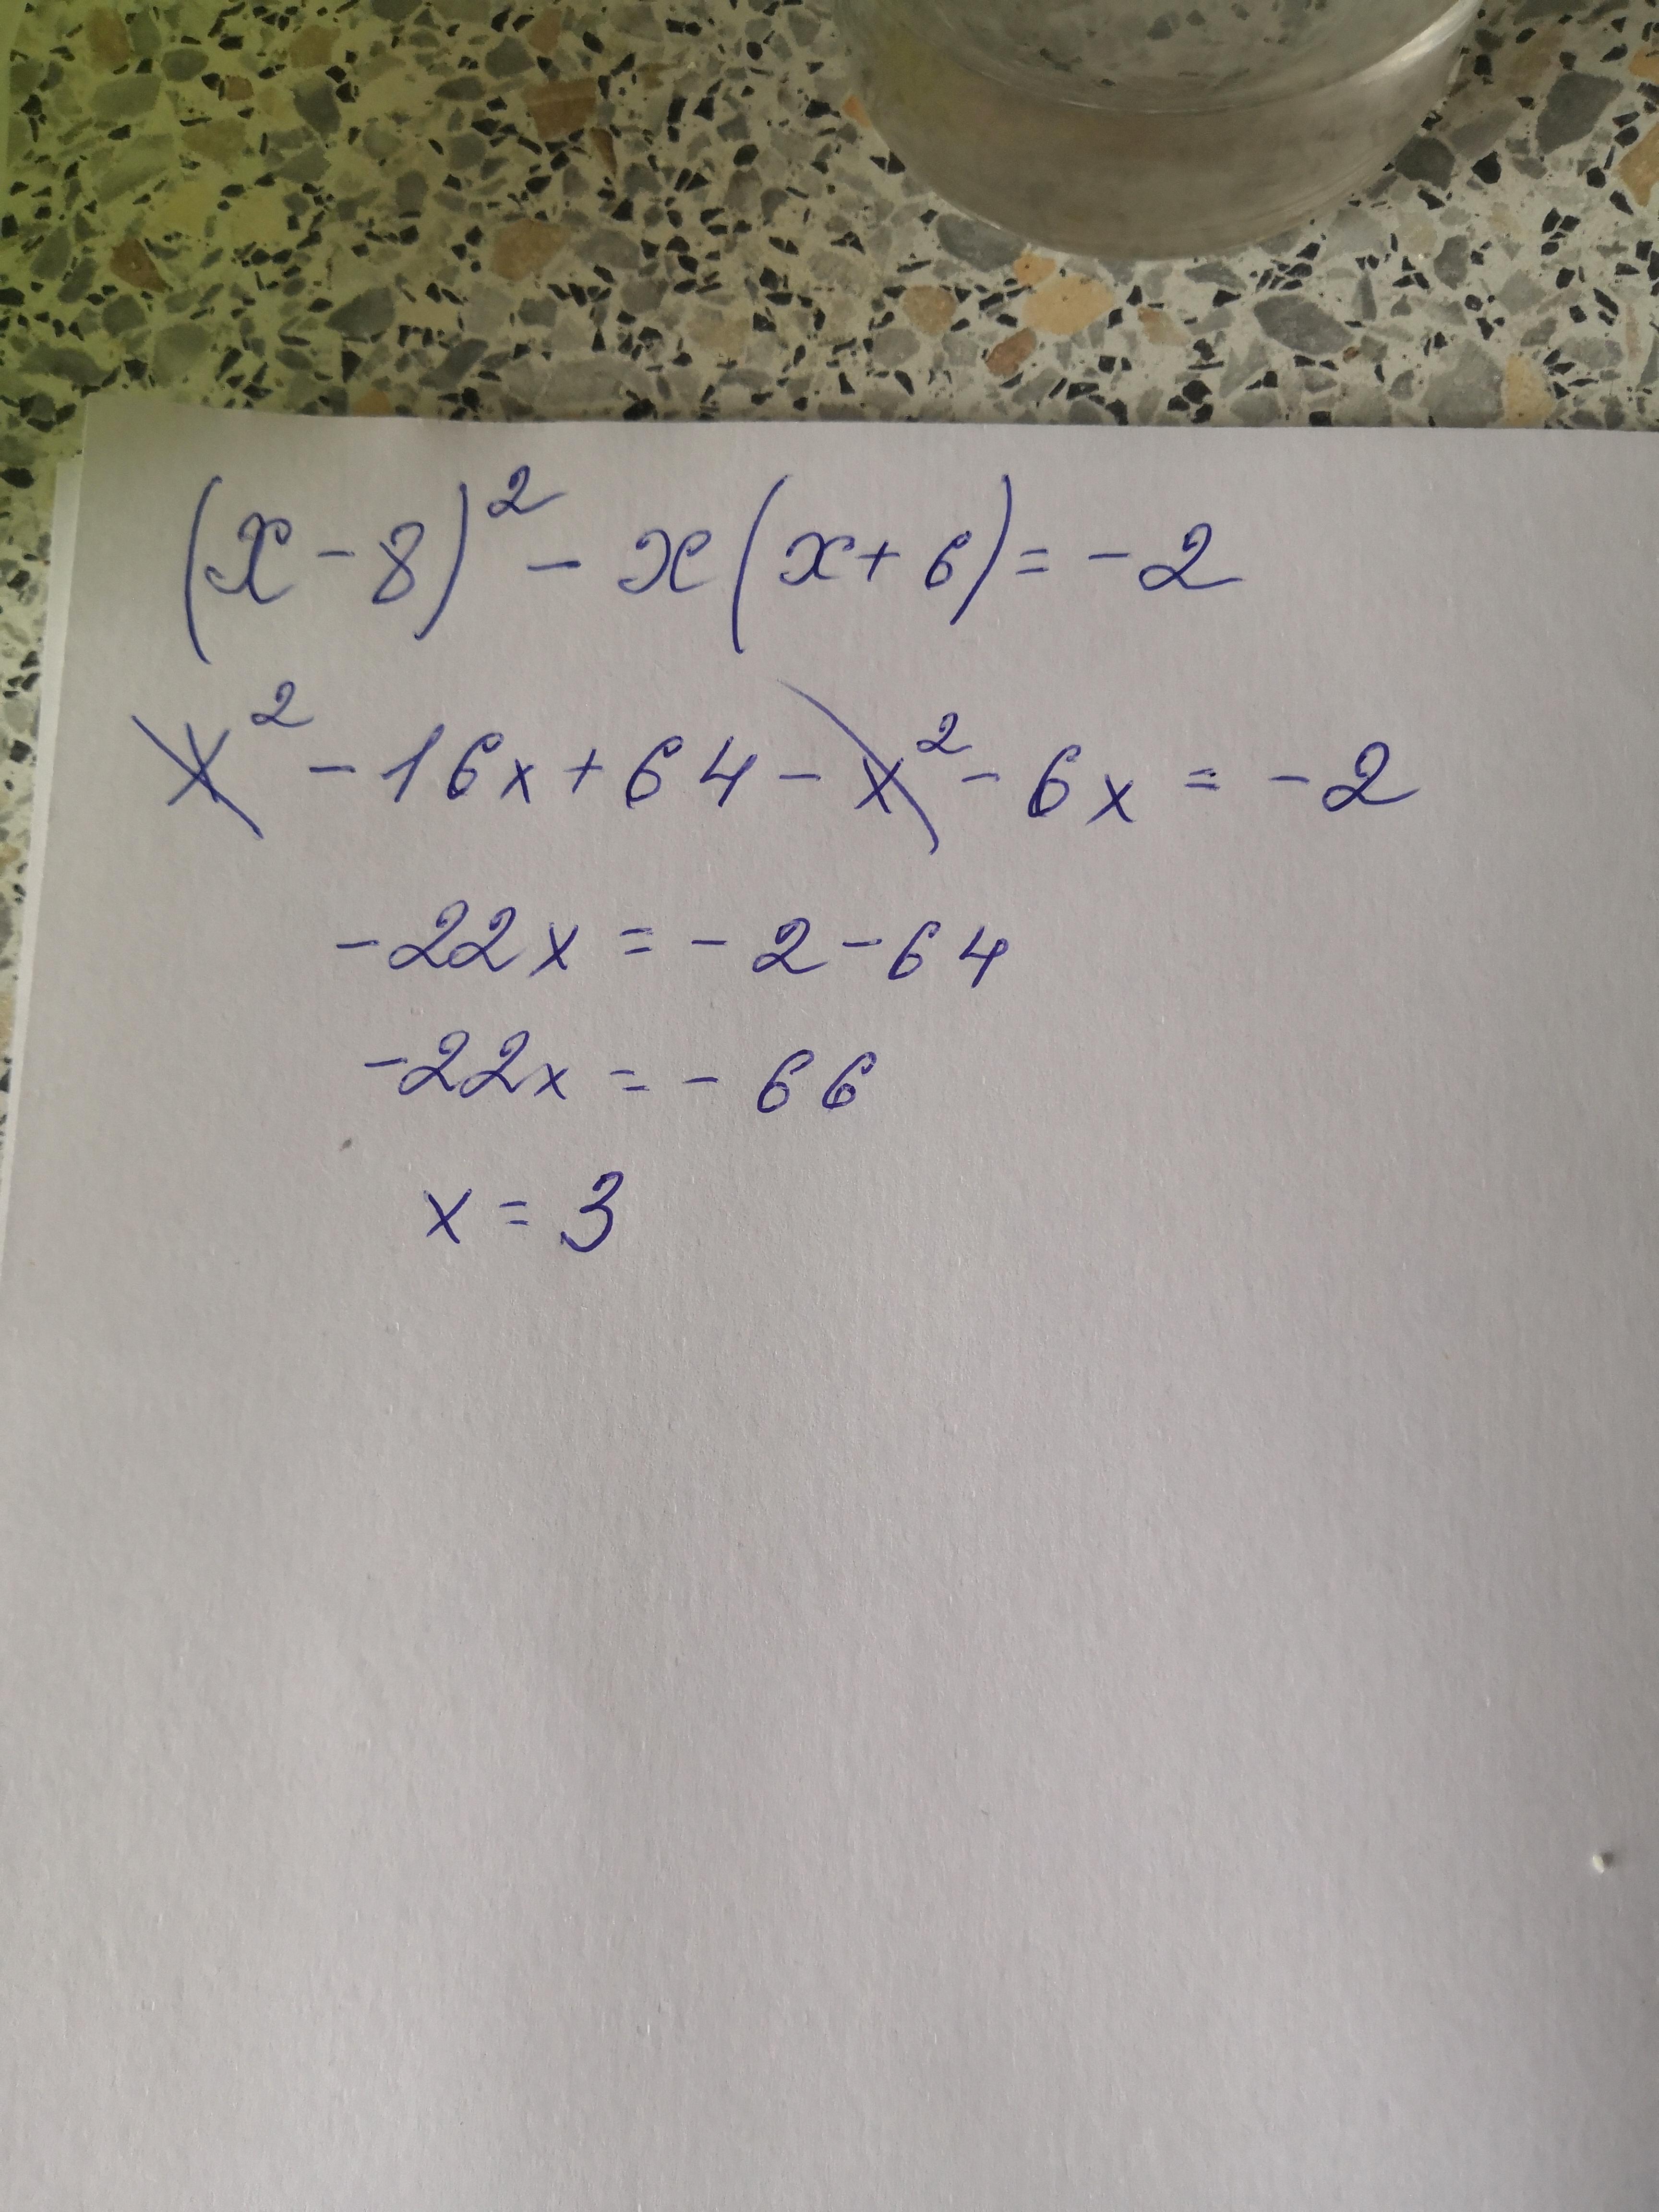 (x - 8)² - x(x + 6) = -2
x² - 16x + 64 - x² - 6x = -2
-22x = -2 - 64
-22x = -66
x = 3